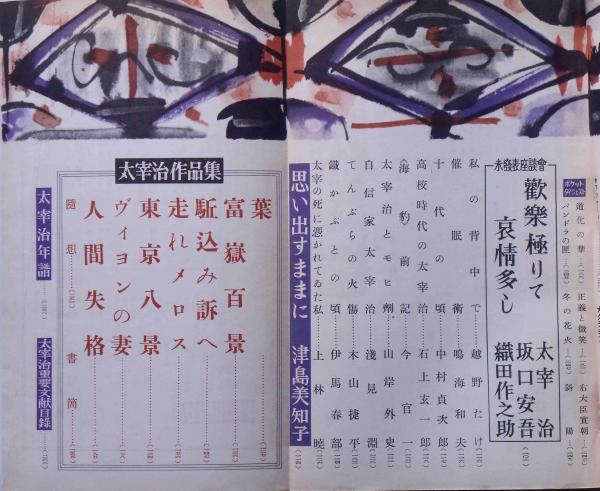 ポケットダイジェスト
道化の華
正義と微笑
右大臣實朝
パンドラの匣
冬の花火
斜陽
未發表座談會
歡樂極りて
哀情多し
太宰治
坂口安吾
織田作之助
私の背中で 越野たけ
催眠術 鳴海和夫
十代の頃 中村貞次郎
高校時代の太宰治 石上玄一郎
〈海豹〉前記 今官一
太宰治とモヒ劑 山岸外史
自信家太宰治 淺見淵
てんぷらの火傷 木山捷平
鐵かぶとの頃 伊馬春部
太宰の死に憑かれてゐた私 上林曉
思い出すままに 津島美知子
太宰治作品集
葉
富嶽百景
駈込み訴へ
走れメロス
東京八景
ヴィヨンの妻
人間失格
隨想
書簡
太宰治年譜
太宰治重要文献目録